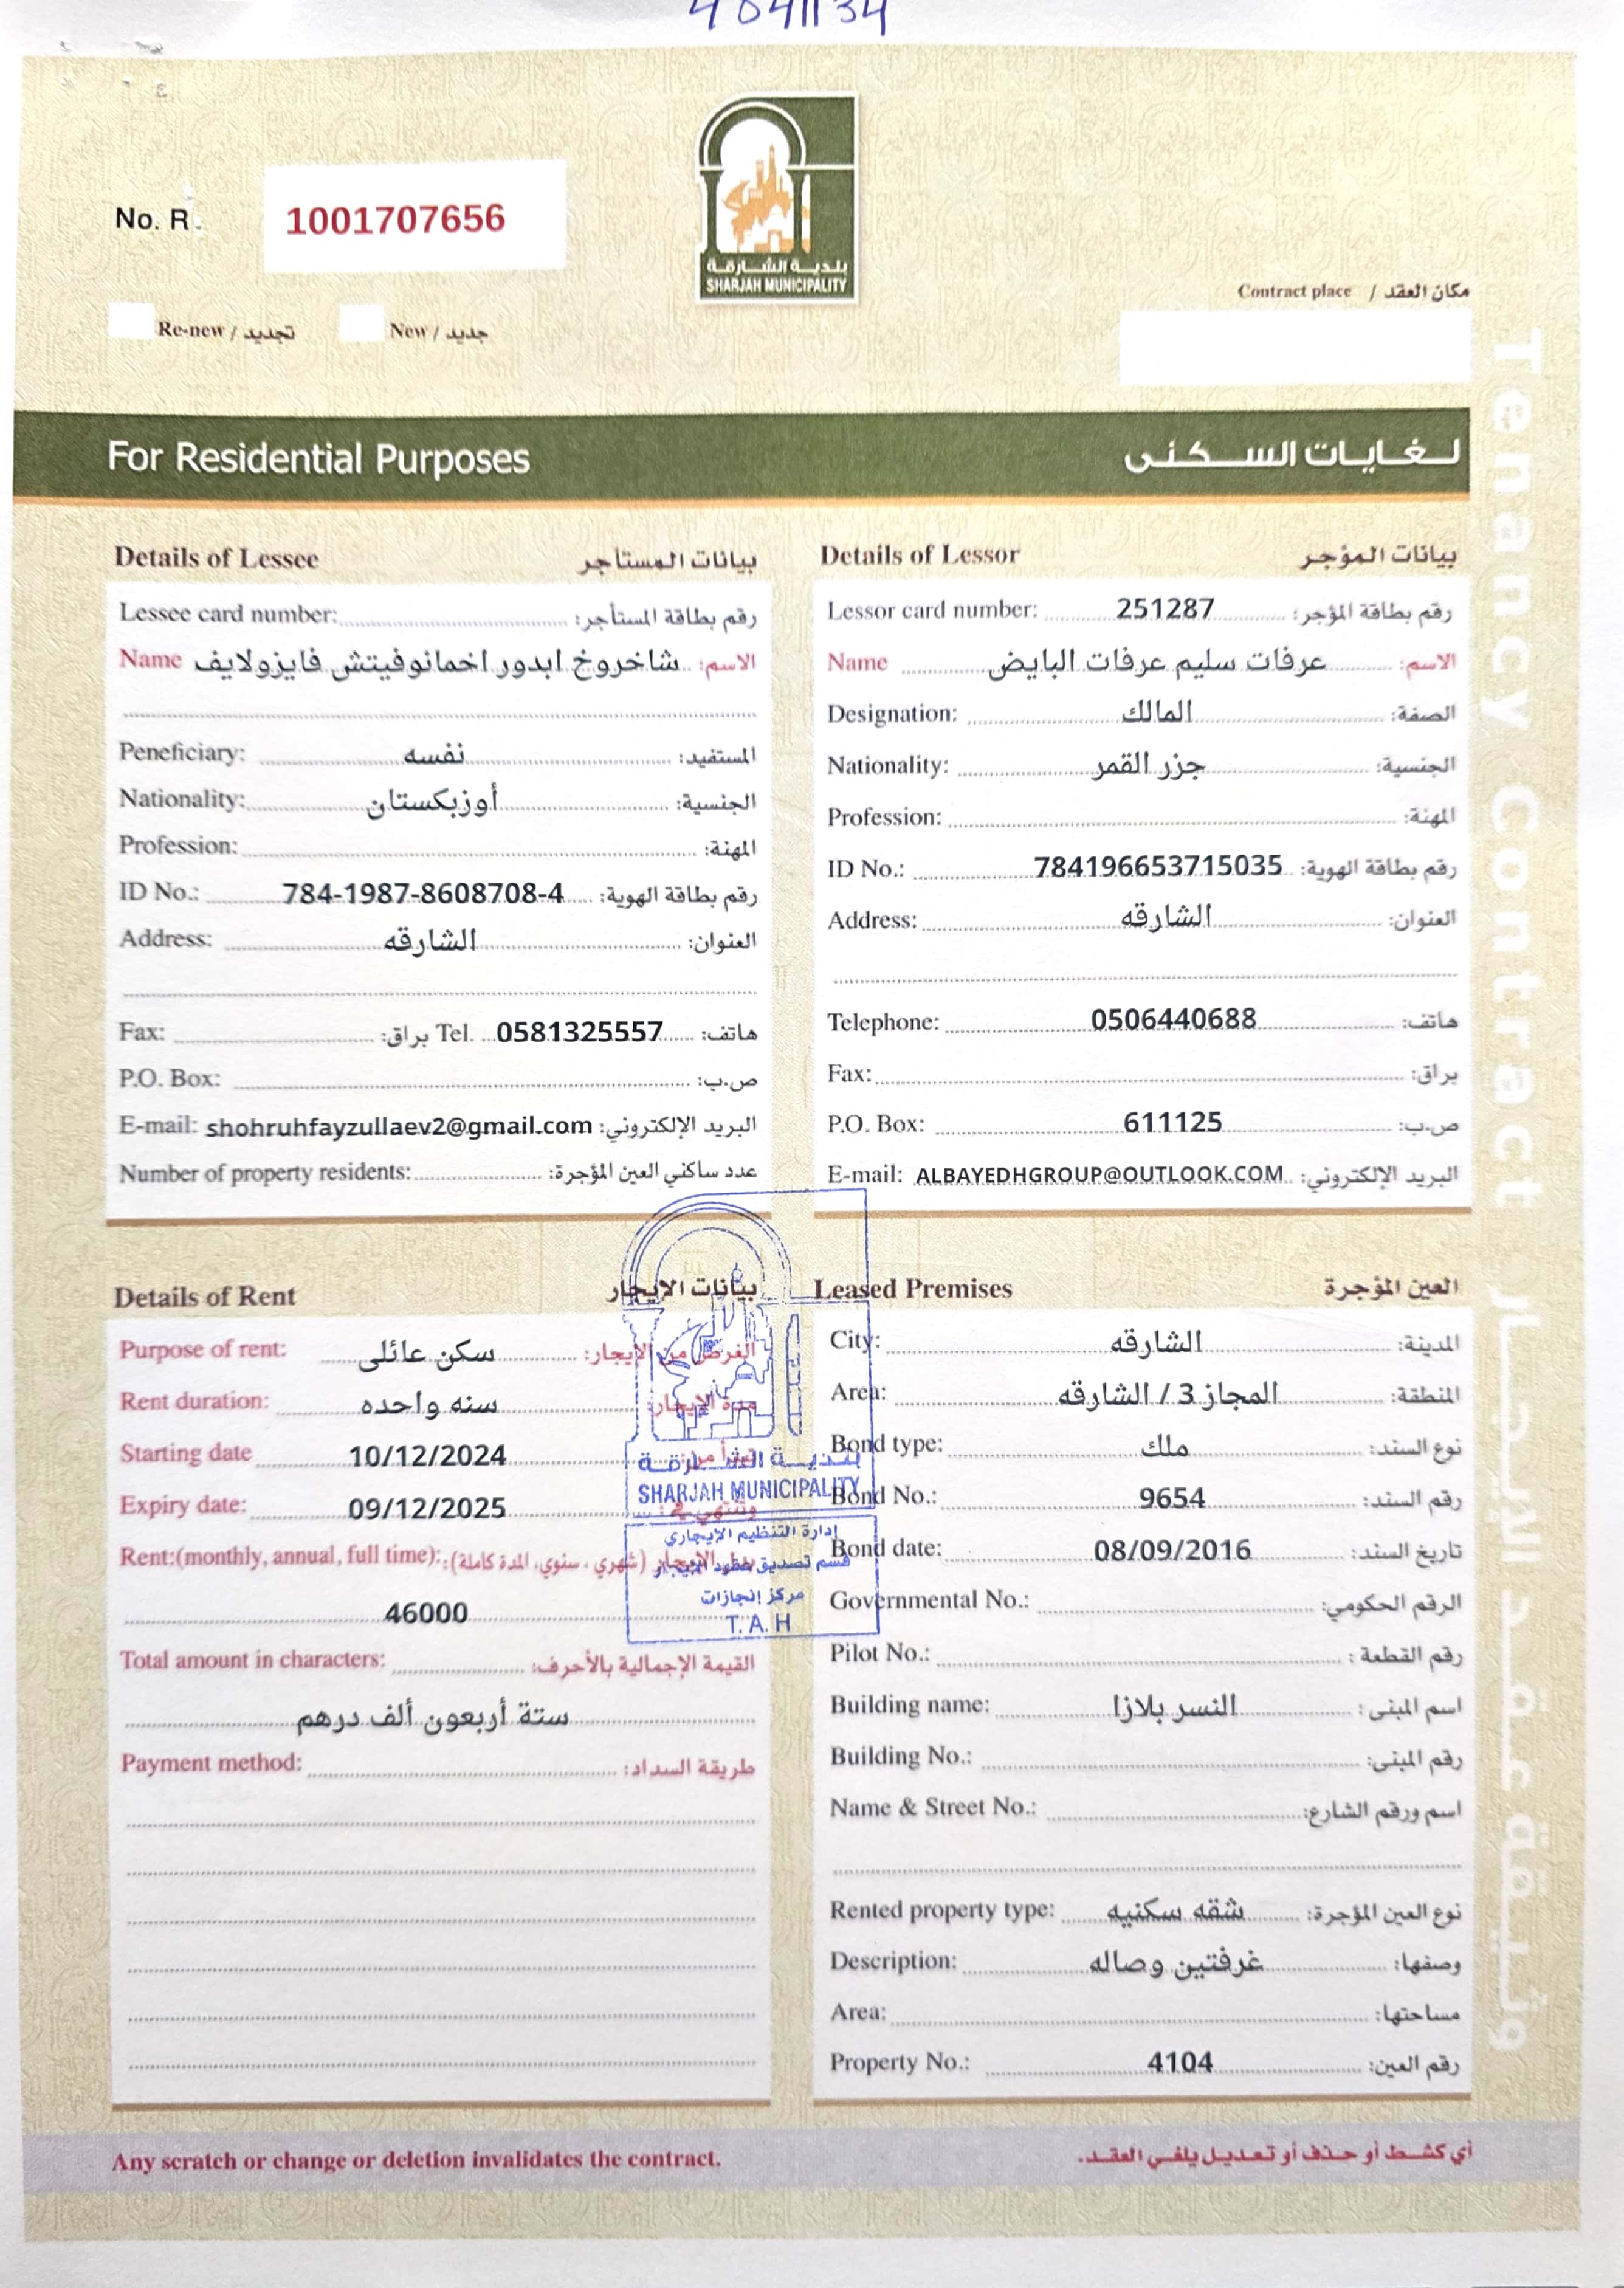 No. R. 1001707656
بلدية الشارقة
SHARJAH MUNICIPALITY
Contract place / مكان العقد
Re-new / تجديد New / جديد
For Residential Purposes لغايات السكنى
Details of Lessee بيانات المستأجر
Lessee card number: رقم بطاقة المستأجر:
Name شاخروخ ابدور اخمانوفيتش فايزولايف الاسم:
Peneficiary: نفسه المستفيد:
Nationality: أوزبكستان الجنسية:
Profession: المهنة:
ID No.: 784-1987-8608708-4 رقم بطاقة الهوية:
Address: الشارقه العنوان:
Fax: براق: Tel. 0581325557 هاتف:
P.O. Box: ص.ب:
E-mail: shohruhfayzullaev2@gmail.com البريد الإلكتروني:
Number of property residents: عدد ساكني العين المؤجرة:
Details of Lessor بيانات المؤجر
Lessor card number: 251287 رقم بطاقة المؤجر:
Name عرفات سليم عرفات البايض الاسم:
Designation: المالك الصفة:
Nationality: جزر القمر الجنسية:
Profession: المهنة:
ID No.: 784196653715035 رقم بطاقة الهوية:
Address: الشارقه العنوان:
Telephone: 0506440688 هاتف:
Fax: براق:
P.O. Box: 611125 ص.ب:
E-mail: ALBAYEDHGROUP@OUTLOOK.COM البريد الإلكتروني:
Details of Rent بيانات الإيجار
Purpose of rent: سكن عائلى الغرض من الإيجار:
Rent duration: سنه واحده مدة الإيجار:
Starting date 10/12/2024 تبدأ من:
Expiry date: 09/12/2025 وتنتهي في:
Rent:(monthly, annual, full time): بدل الإيجار (شهري، سنوي، المدة كاملة):
46000
Total amount in characters: القيمة الإجمالية بالأحرف:
ستة أربعون ألف درهم
Payment method: طريقة السداد:
بلدية الشارقة
SHARJAH MUNICIPALITY
إدارة التنظيم الإيجاري
قسم تصديق عقود الإيجار
مركز إنجازات
T.A.H
Leased Premises العين المؤجرة
City: الشارقه المدينة:
Area: المجاز 3 / الشارقه المنطقة:
Bond type: ملك نوع السند:
Bond No.: 9654 رقم السند:
Bond date: 08/09/2016 تاريخ السند:
Governmental No.: الرقم الحكومي:
Pilot No.: رقم القطعة :
Building name: النسر بلازا اسم المبنى :
Building No.: رقم المبنى:
Name & Street No.: اسم ورقم الشارع:
Rented property type: شقه سكنيه نوع العين المؤجرة:
Description: غرفتين وصاله وصفها:
Area: مساحتها:
Property No.: 4104 رقم العين:
Any scratch or change or deletion invalidates the contract. أي كشط أو حذف أو تعديل يلغي العقد.
Tenancy Contract وثيقة عقد الإيجار